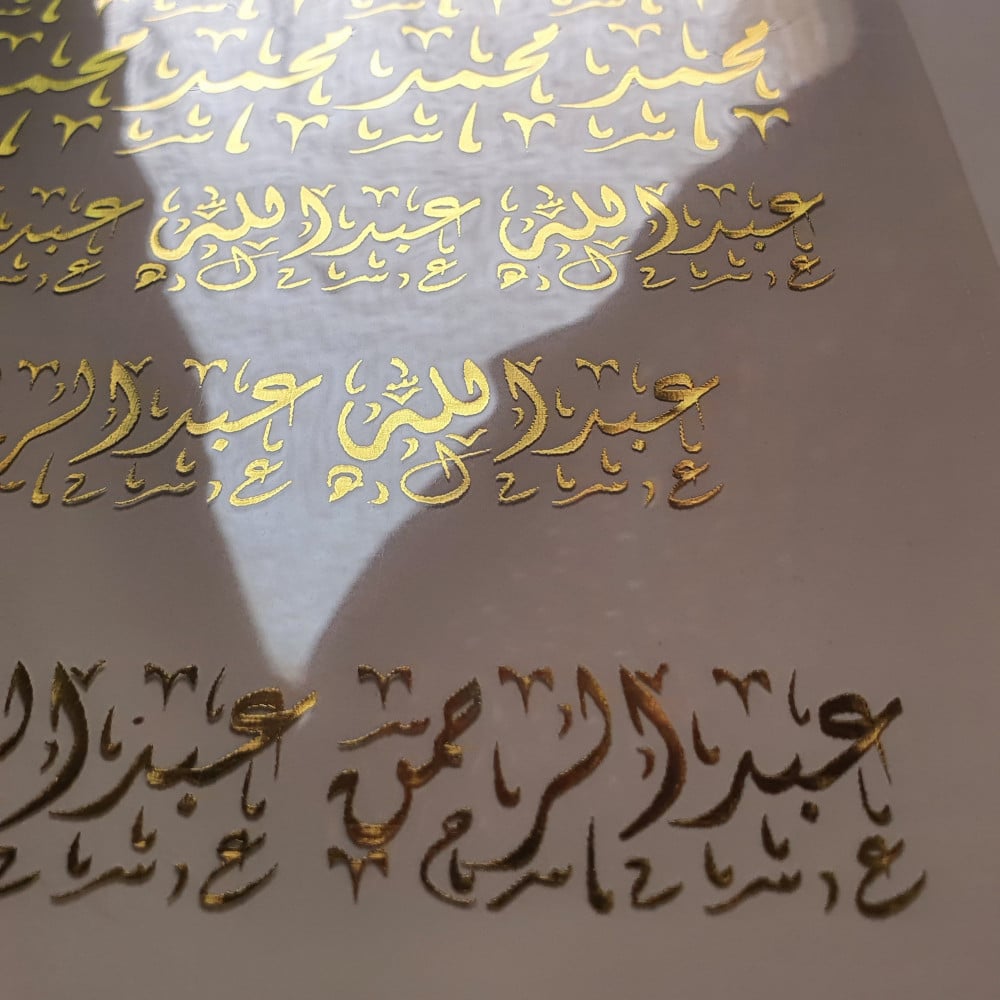 محمد محمد محمد محمد
عبدالله عبدالله عبد
عبدالله عبدالر
عبدالرحمن عبدال